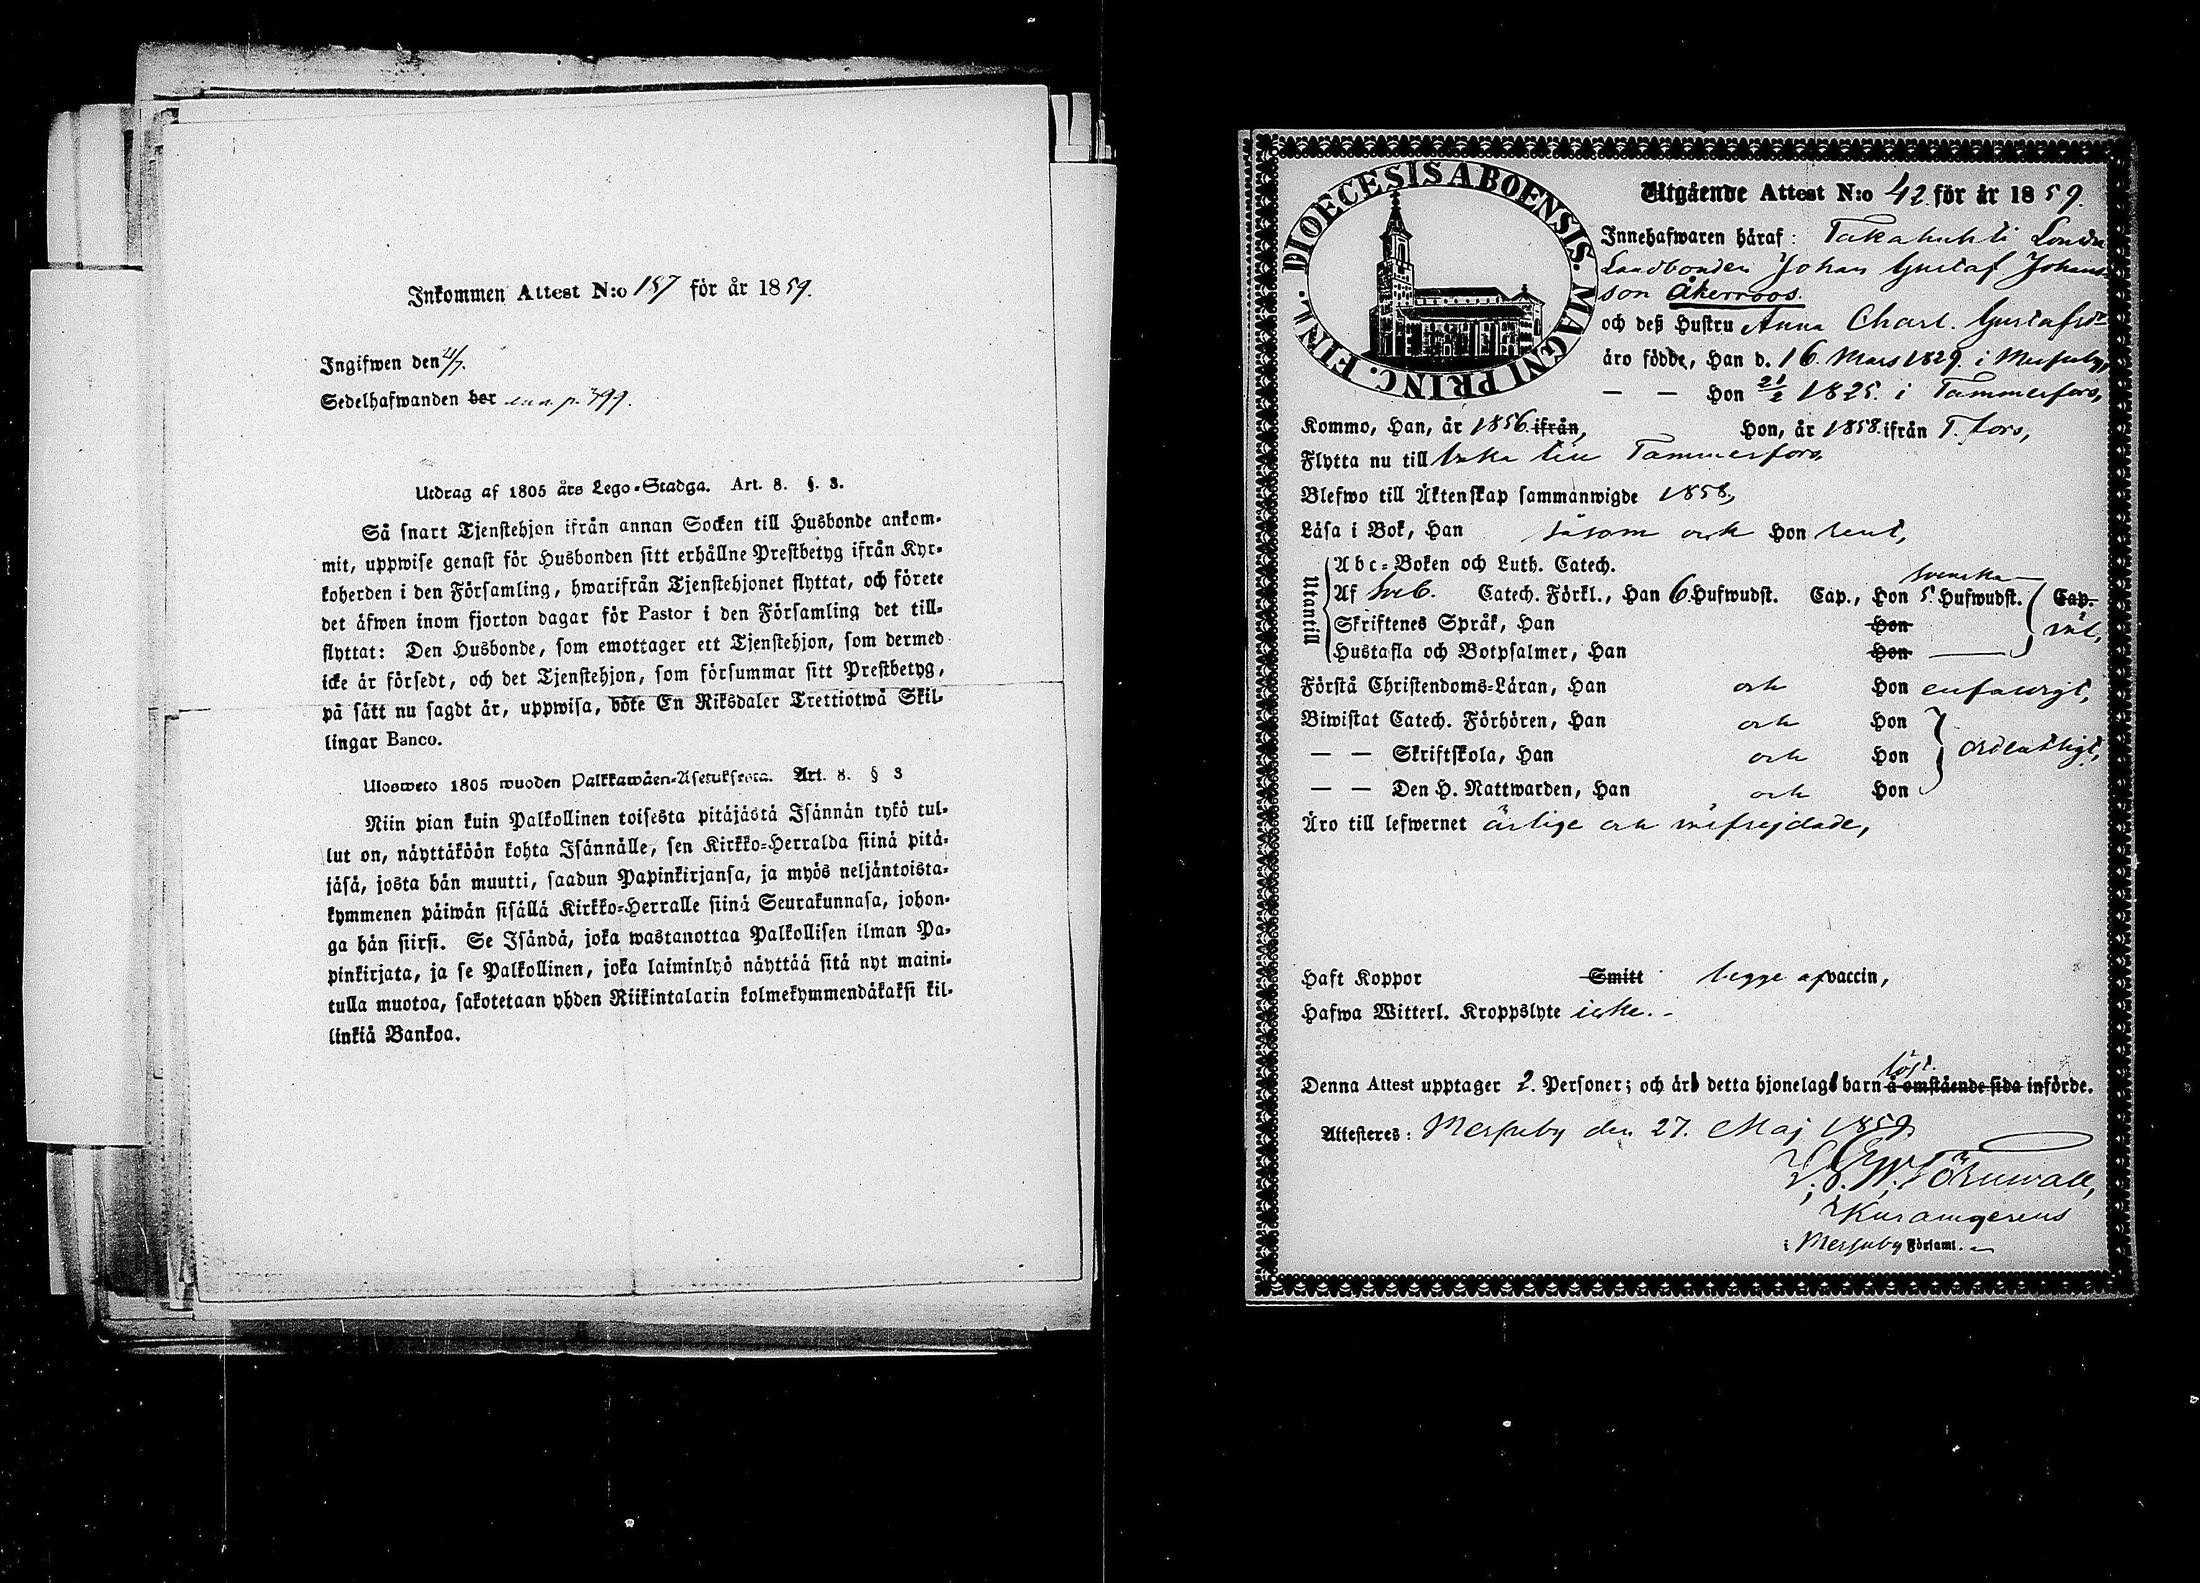 Inkommen Attest N:o 157 för år 1859.
Ingifwen den 4/7.
Sedelhafwanden bor p. 399.
Utdrag af 1805 års Lego-Stadga. Art. 8. §. 3.
Så snart Tjenstehjon ifrån annan Socken till Husbonde ankom-
mit, uppwise genast för Husbonden sitt erhållne Prestbetyg ifrån Kyr-
koherden i den Församling, hwarifrån Tjenstehjonet flyttat, och förete
det äfwen inom fjorton dagar för Pastor i den Församling det till-
flyttat: Den Husbonde, som emottager ett Tjenstehjon, som dermed
icke är försedt, och det Tjenstehjon, som försummar sitt Prestbetyg,
på sätt nu sagdt är, uppwisa, böte En Riksdaler Trettiotwå Skil-
lingar Banco.
Ulosweto 1805 wuoden Palkkawäen-Asetuksesta. Art. 8. § 3
Niin pian kuin Palkollinen toisesta pitäjästä Isännän tykö tul-
lut on, näyttäköön kohta Isännälle, sen Kirkko-Herralda siinä pitä-
jäsä, josta hän muutti, saadun Papinkirjansa, ja myös neljäntoista-
kymmenen päiwän sisällä Kirkko-Herralle siinä Seurakunnasa, johon-
ga hän siirsi. Se Isändä, joka wastanottaa Palkollisen ilman Pa-
pinkirjata, ja se Palkollinen, joka laiminlyö näyttää sitä nyt maini-
tulla muotoa, sakotetaan yhden Riikintalarin kolmekymmendäkaksi kil-
linkiä Bankoa.
DIOECESIS ABOENSIS. MAGNI PRINC. FINL.
Utgående Attest N:o 42 för år 1859.
Innehafwaren häraf: Takahuhti
Landbonden Johan Gustaf Johans-
son Åkerroos.
och deß Hustru Anna Charl. Gustafsdr
äro födde, Han d. 16. Mars 1829. i Messuby,
— — Hon 21/2 1825. i Tammerfors,
Kommo, Han, år 1856 ifrån, Hon, år 1858. ifrån T. fors,
Flytta nu till baka till Tammerfors
Blefwo till Äktenskap sammanwigde 1858,
Läsa i Bok, Han såsom och Hon rent,
Utantill
Abc-Boken och Luth. Catech.
svenska
Af Sveb. Catech. Förkl., Han 6. Hufwudst. Cap., Hon 5. Hufwudst. Cap.
Skriftenes Språk, Han Hon väl,
Hustafla och Botpsalmer, Han Hon
Förstå Christendoms-Läran, Han och Hon enfaldigt,
Biwistat Catech. Förhören, Han och Hon
— — Skriftskola, Han och Hon ordentligt,
— — Den H. Nattwarden, Han och Hon
Äro till lefwernet ärlige och wälfrejdade,
Haft Koppor Smitt begge af vaccin,
Hafwa Witterl. Kroppslyte icke.
löst.
Denna Attest upptager 2. Personer; och är detta hjonelag barn å omstående sida införde.
Attesteres: Messuby den 27. Maj 1859.
Törnwall,
i Messuby Församl.